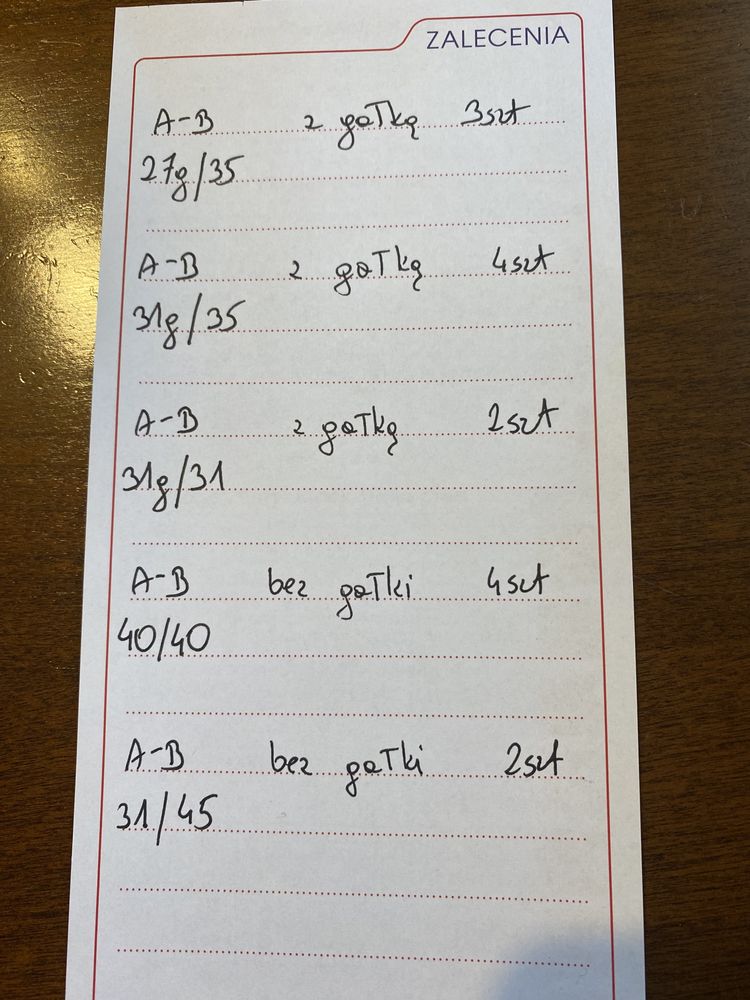 ZALECENIA
A-B z gałką 3szt
27g/35
A-B z gałką 4szt
31g/35
A-B z gałką 2szt
31g/31
A-B bez gałki 4szt
40/40
A-B bez gałki 2szt
31/45